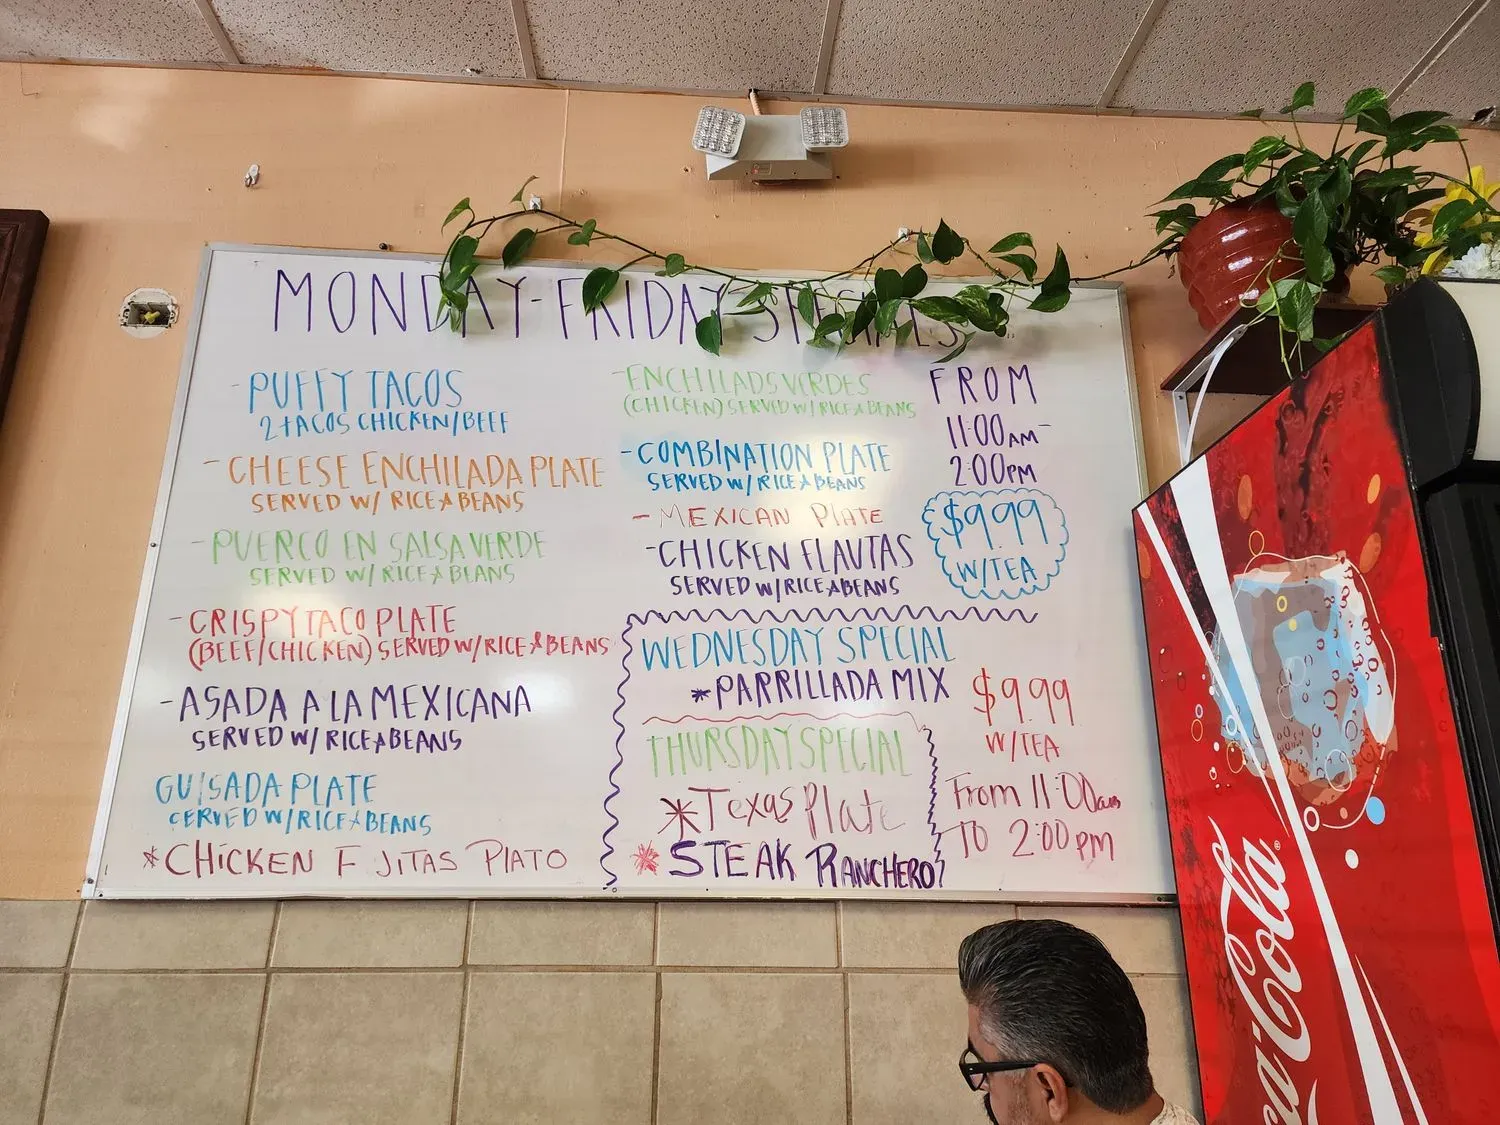 MONDAY-FRIDAY SPECIALS
- PUFFY TACOS
2 TACOS CHICKEN/BEEF
- CHEESE ENCHILADA PLATE
SERVED W/ RICE & BEANS
- PUERCO EN SALSA VERDE
SERVED W/ RICE & BEANS
- CRISPY TACO PLATE
(BEEF/CHICKEN) SERVED W/ RICE & BEANS
- ASADA A LA MEXICANA
SERVED W/ RICE & BEANS
GUISADA PLATE
SERVED W/ RICE & BEANS
* CHICKEN F JITAS PLATO
- ENCHILADS VERDES
(CHICKEN) SERVED W/ RICE & BEANS
- COMBINATION PLATE
SERVED W/ RICE & BEANS
- MEXICAN PLATE
- CHICKEN FLAUTAS
SERVED W/ RICE & BEANS
FROM
11:00AM-
2:00PM
$9.99
W/TEA
WEDNESDAY SPECIAL
* PARRILLADA MIX
THURSDAY SPECIAL
* Texas Plate
* STEAK RANCHERO
$9.99
W/TEA
From 11:00am
TO 2:00pm
Coca-Cola